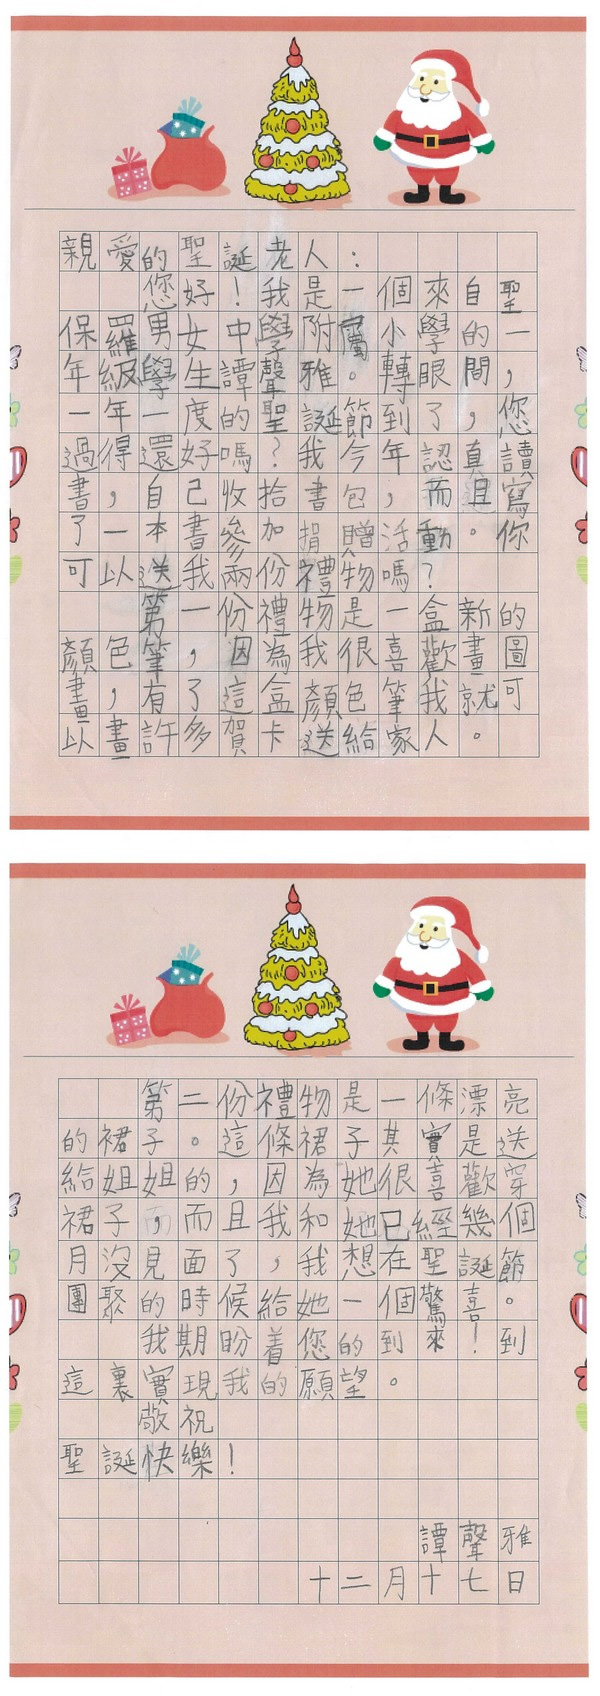 親愛的聖誕老人：
您好！我是一個來自聖
保羅男女中學附屬小學的一
年級學生譚聲雅。轉眼間，
一年一度的聖誕節到了，您
過得還好嗎？我今年認真讀
書，自己收拾書包，而且寫
了一本書參加捐贈活動。你
可以送我兩份禮物嗎？
第一份禮物是一盒新的
顏色筆，因為我很喜歡畫圖
畫，有了這盒顏色筆我就可
以畫許多賀卡送給家人。
第二份禮物是一條漂亮
的裙子。這條裙子其實是送
給姐姐的，因為她很喜歡穿
裙子，而且我和她已經幾個
月沒見面了，我想在聖誕節
團聚的時候給她一個驚喜。
我期盼着您的到來！到
這裏實現我的願望。
敬祝
聖誕快樂！
譚聲雅
十二月十七日